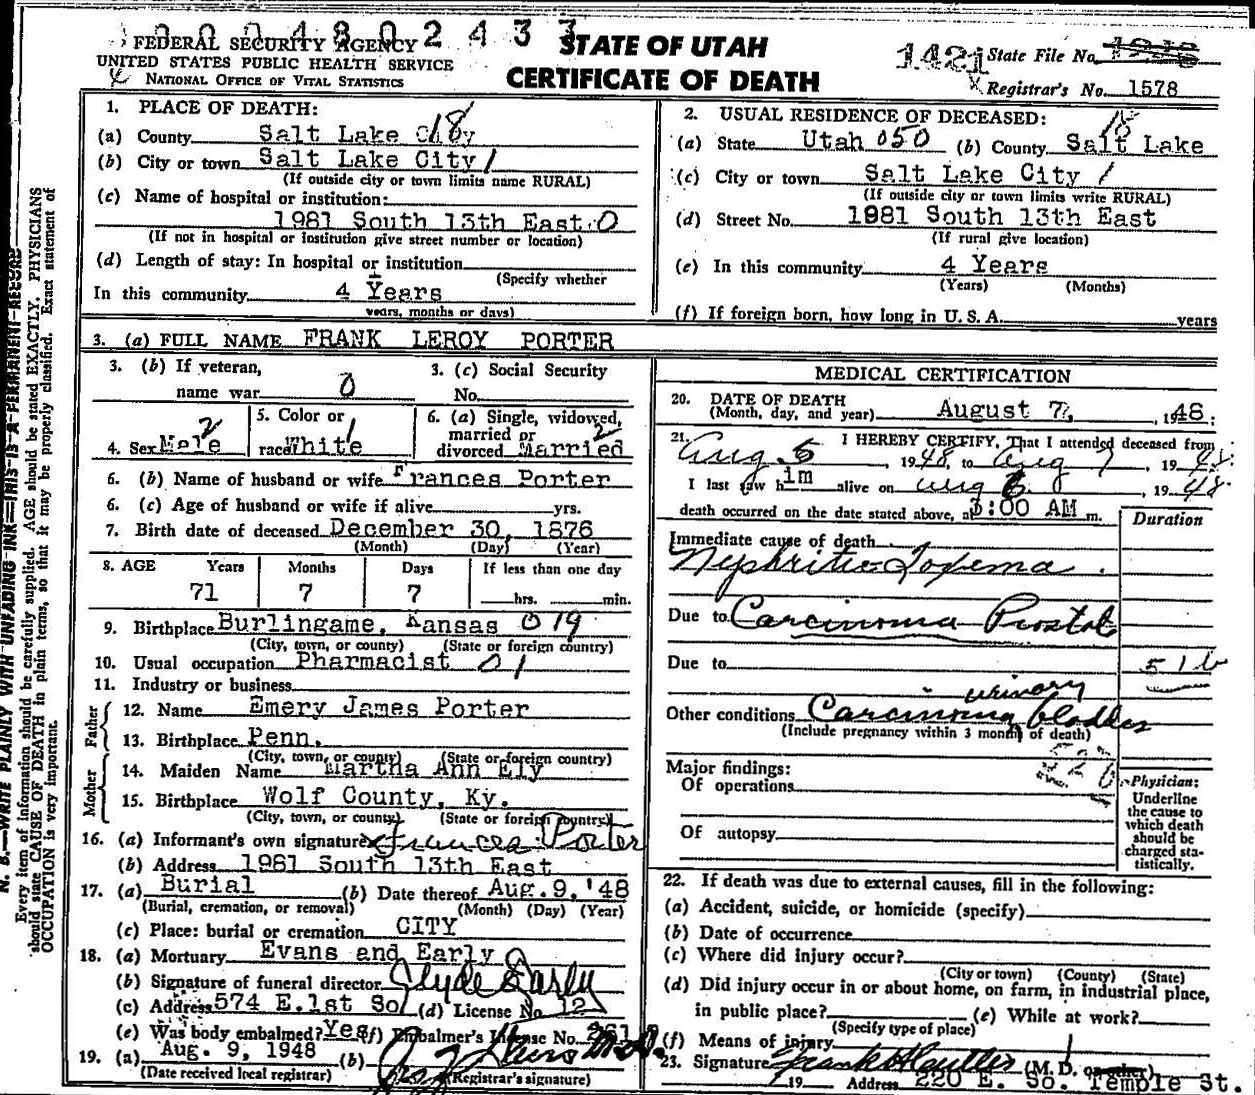 0 0 0 4 8 0 2 4 3 3
FEDERAL SECURITY AGENCY
UNITED STATES PUBLIC HEALTH SERVICE
NATIONAL OFFICE OF VITAL STATISTICS
STATE OF UTAH
CERTIFICATE OF DEATH
1421 State File No.
Registrar's No. 1578
1. PLACE OF DEATH:
(a) County Salt Lake 18
(b) City or town Salt Lake City 1
(If outside city or town limits name RURAL)
(c) Name of hospital or institution:
1981 South 13th East 0
(If not in hospital or institution give street number or location)
(d) Length of stay: In hospital or institution
(Specify whether
In this community 4 Years
years, months or days)
2. USUAL RESIDENCE OF DECEASED:
18
(a) State Utah 050 (b) County Salt Lake
(c) City or town Salt Lake City 1
(If outside city or town limits write RURAL)
(d) Street No. 1981 South 13th East
(If rural give location)
(e) In this community 4 Years
(Years) (Months)
(f) If foreign born, how long in U. S. A. years
3. (a) FULL NAME FRANK LEROY PORTER
3. (b) If veteran,
name war 0
3. (c) Social Security
No.
4. Sex Male 2
5. Color or
race White 1
6. (a) Single, widowed,
married or
divorced Married 2
6. (b) Name of husband or wife Frances Porter
6. (c) Age of husband or wife if alive yrs.
7. Birth date of deceased December 30, 1876
(Month) (Day) (Year)
8. AGE Years Months Days If less than one day
71 7 7 hrs. min.
9. Birthplace Burlingame, Kansas 019
(City, town, or county) (State or foreign country)
10. Usual occupation Pharmacist 01
11. Industry or business
Father
12. Name Emery James Porter
13. Birthplace Penn.
(City, town, or county) (State or foreign country)
Mother
14. Maiden Name Martha Ann Ely
15. Birthplace Wolf County, Ky.
(City, town, or county) (State or foreign country)
16. (a) Informant's own signature x Frances Porter
(b) Address 1981 South 13th East
17. (a) Burial (b) Date thereof Aug. 9, '48
(Burial, cremation, or removal) (Month) (Day) (Year)
(c) Place: burial or cremation CITY
18. (a) Mortuary Evans and Early
(b) Signature of funeral director Clyde Early
(c) Address 574 E. 1st So (d) License No. 12
(e) Was body embalmed? Yes (f) Embalmer's License No. 261
19. (a) Aug. 9, 1948 (b)
(Date received local registrar) (Registrar's signature)
MEDICAL CERTIFICATION
20. DATE OF DEATH
(Month, day, and year) August 7, , 1948.
21. I HEREBY CERTIFY, That I attended deceased from
Aug. 5, 1948, to Aug 7, 1948.
I last saw him alive on Aug 6, 1948.
death occurred on the date stated above, at 3:00 AM m.
Duration
Immediate cause of death
Nephritic Toxema
Due to Carcinoma Prostate
Due to
51 b
urinary
Other conditions Carcinoma bladder
(Include pregnancy within 3 months of death)
526
Major findings:
Of operations
Of autopsy
Physician:
Underline
the cause to
which death
should be
charged sta-
tistically.
22. If death was due to external causes, fill in the following:
(a) Accident, suicide, or homicide (specify)
(b) Date of occurrence
(c) Where did injury occur?
(City or town) (County) (State)
(d) Did injury occur in or about home, on farm, in industrial place,
in public place? (e) While at work?
(Specify type of place)
(f) Means of injury
23. Signature (M. D. or other)
19 Address 220 E. So. Temple St.
N. B.—WRITE PLAINLY WITH UNFADING INK—THIS IS A PERMANENT RECORD
Every item of information should be carefully supplied. AGE should be stated EXACTLY. PHYSICIANS
should state CAUSE OF DEATH in plain terms, so that it may be properly classified. Exact statement of
OCCUPATION is very important.